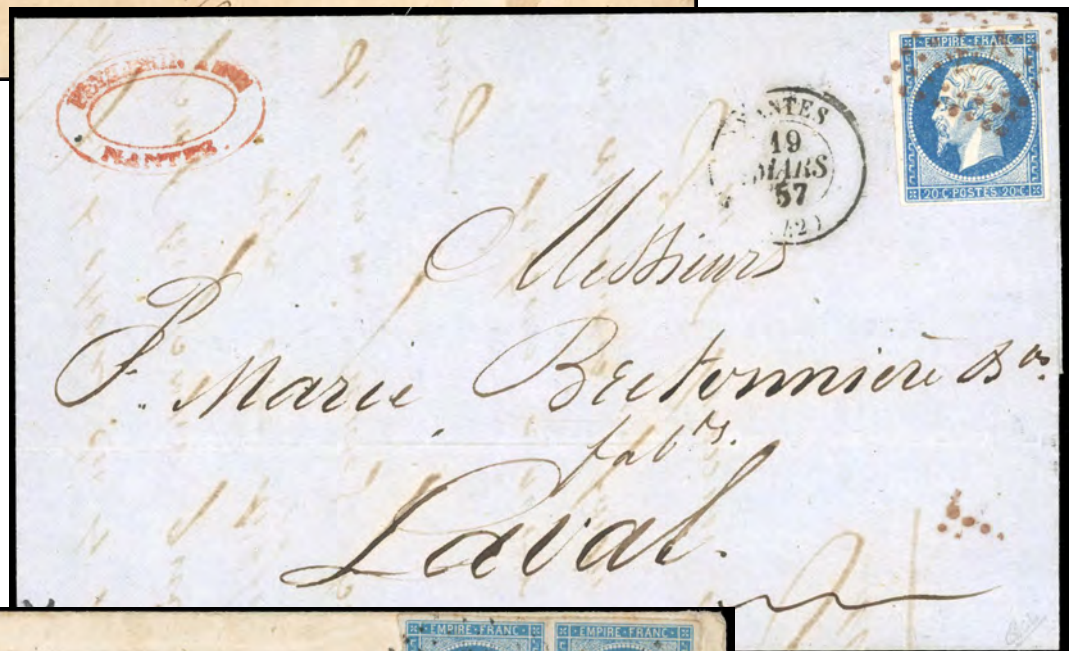 NANTES
NANTES
19
MARS
57
EMPIRE · FRANC ·
20 C POSTES 20 C
Messieurs
P. Marie Bretonnière &
fab ts.
Laval.
EMPIRE · FRANC · EMPIRE · FRANC ·